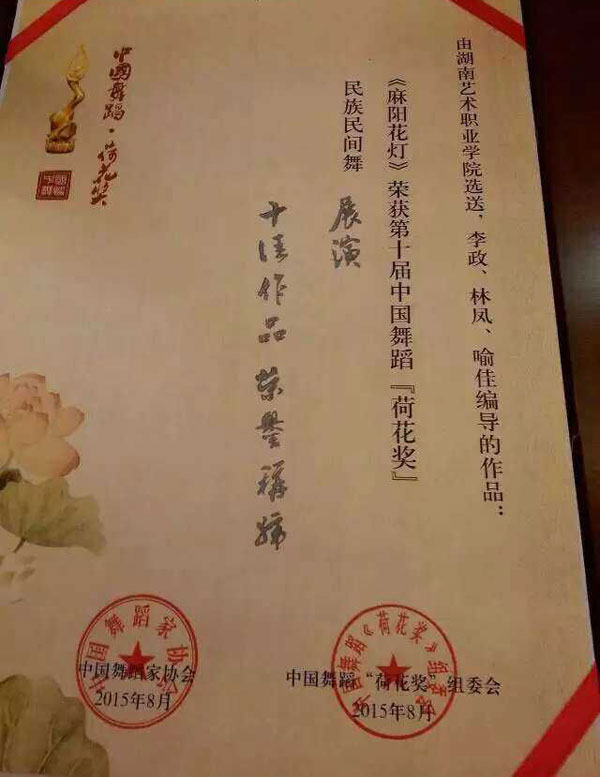 由湖南艺术职业学院选送，李政、林凤、喻佳编导的作品：
《麻阳花灯》荣获第十届中国舞蹈『荷花奖』
民族民间舞 展演
十佳作品荣誉称号
中國舞蹈·荷花奖
中国舞蹈家协会
2015年8月
中国舞蹈家协会
中国舞蹈“荷花奖”组委会
2015年8月
中国舞蹈《荷花奖》组委会